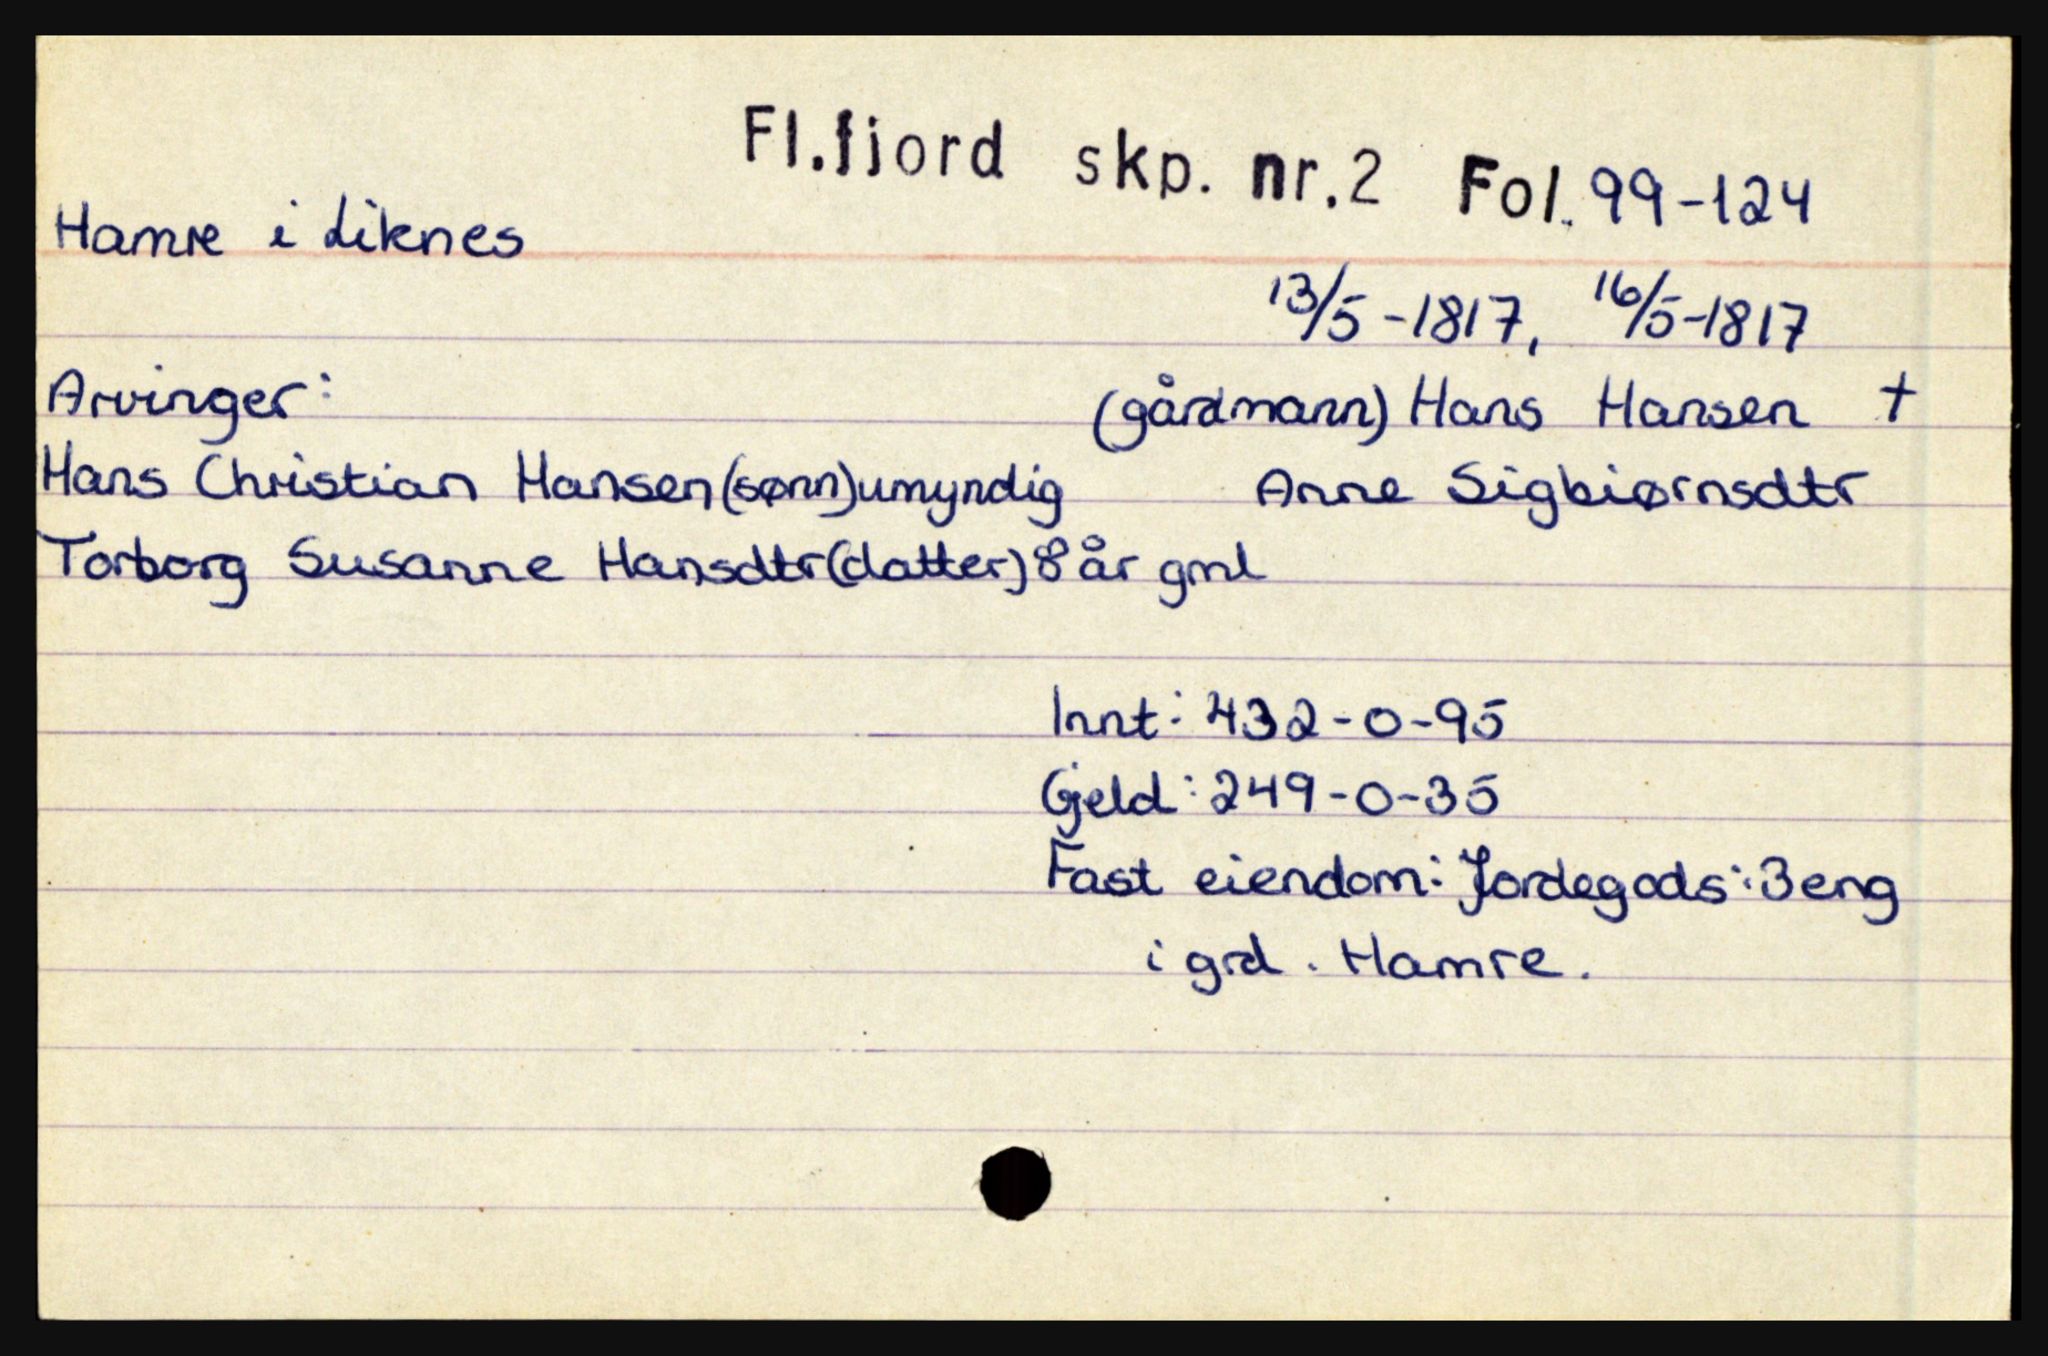 Fl.fjord skp. nr.2 Fol. 99-124
Hamre i Liknes
13/5-1817, 16/5-1817
Arvinger: (gårdmann) Hans Hansen †
Hans Christian Hansen (sønn) umyndig Anne Sigbiørnsdtr
Torborg Susanne Hansdtr (datter) 8 år gml
Innt: 432-0-95
Gjeld: 249-0-35
Fast eiendom: Jordegods: 3 eng
i grd. Hamre.